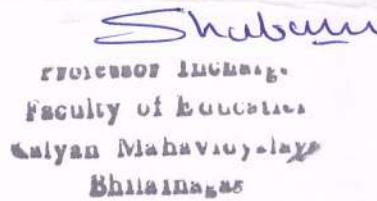 Shabana
Professor Incharge
Faculty of Education
Kalyan Mahavidyalaya
Bhilainagar